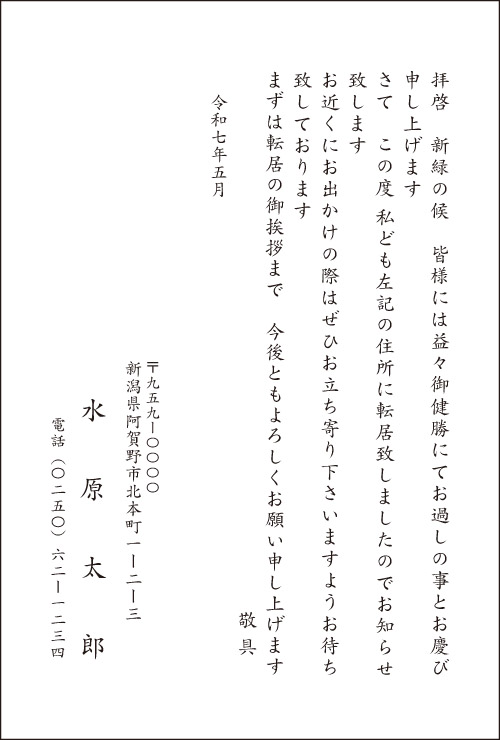 拝啓　新緑の候　皆様には益々御健勝にてお過しの事とお慶び
申し上げます
さて　この度 私ども左記の住所に転居致しましたのでお知らせ
致します
お近くにお出かけの際はぜひお立ち寄り下さいますようお待ち
致しております
まずは転居の御挨拶まで　今後ともよろしくお願い申し上げます
敬具
令和七年五月
〒九五九ー〇〇〇〇
新潟県阿賀野市北本町一ー二ー三
水原太郎
電話（〇二五〇）六二ー一二三四